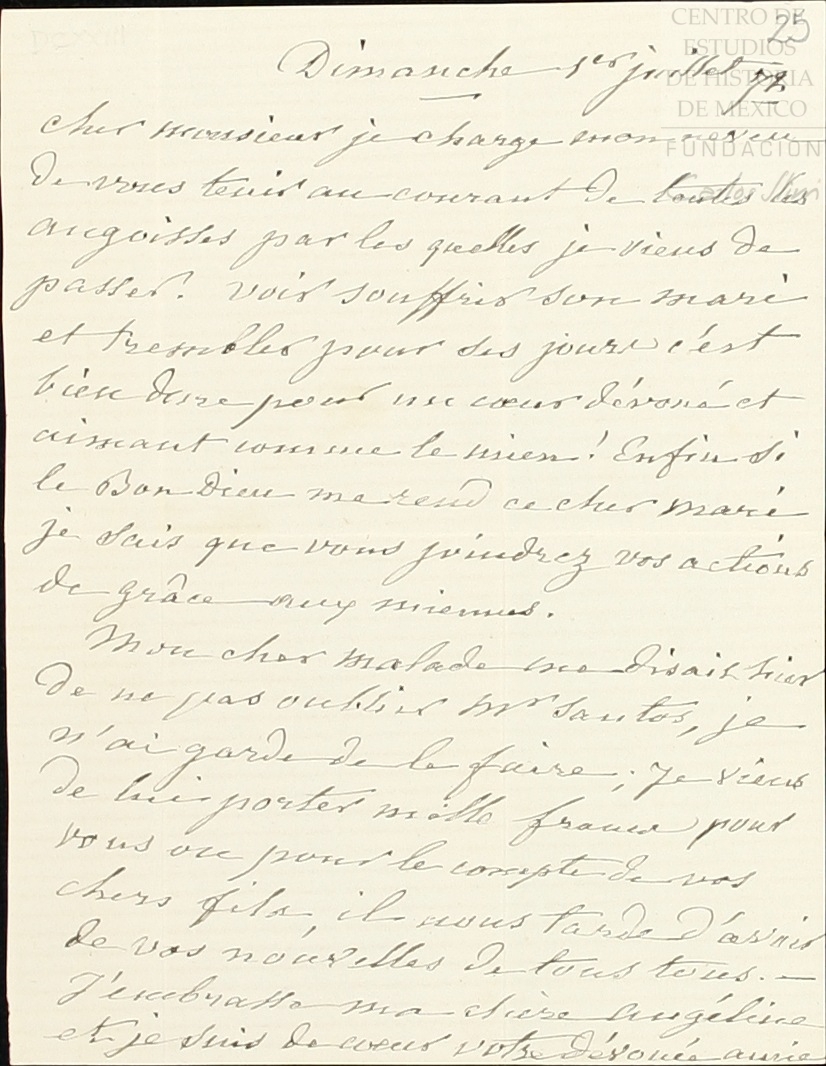 25
CENTRO DE
ESTUDIOS
DE HISTORIA
DE MEXICO
FUNDACION
Carlos Slim
Dimanche 1er juillet
cher monsieur je charge mon neveu
de vous tenir au courant de toutes les
angoisses par les quelles je viens de
passer. Voir souffrir son mari
et trembler pour ses jours c'est
bien dure pour un cœur dévoué et
aimant comme le mien! Enfin si
le Bon Dieu me rend ce cher mari
je sais que vous joindrez vos actions
de grâce aux miennes.
Mon cher malade me disait hier
de ne pas oublier Mr Santos, je
n'ai garde de le faire; Je viens
de lui porter mille francs pour
vous ou pour le compte de vos
chers fils, il nous tarde d'avoir
de vos nouvelles de tous tous. —
J'embrasse ma chère Angéline
et je suis de cœur votre dévouée amie